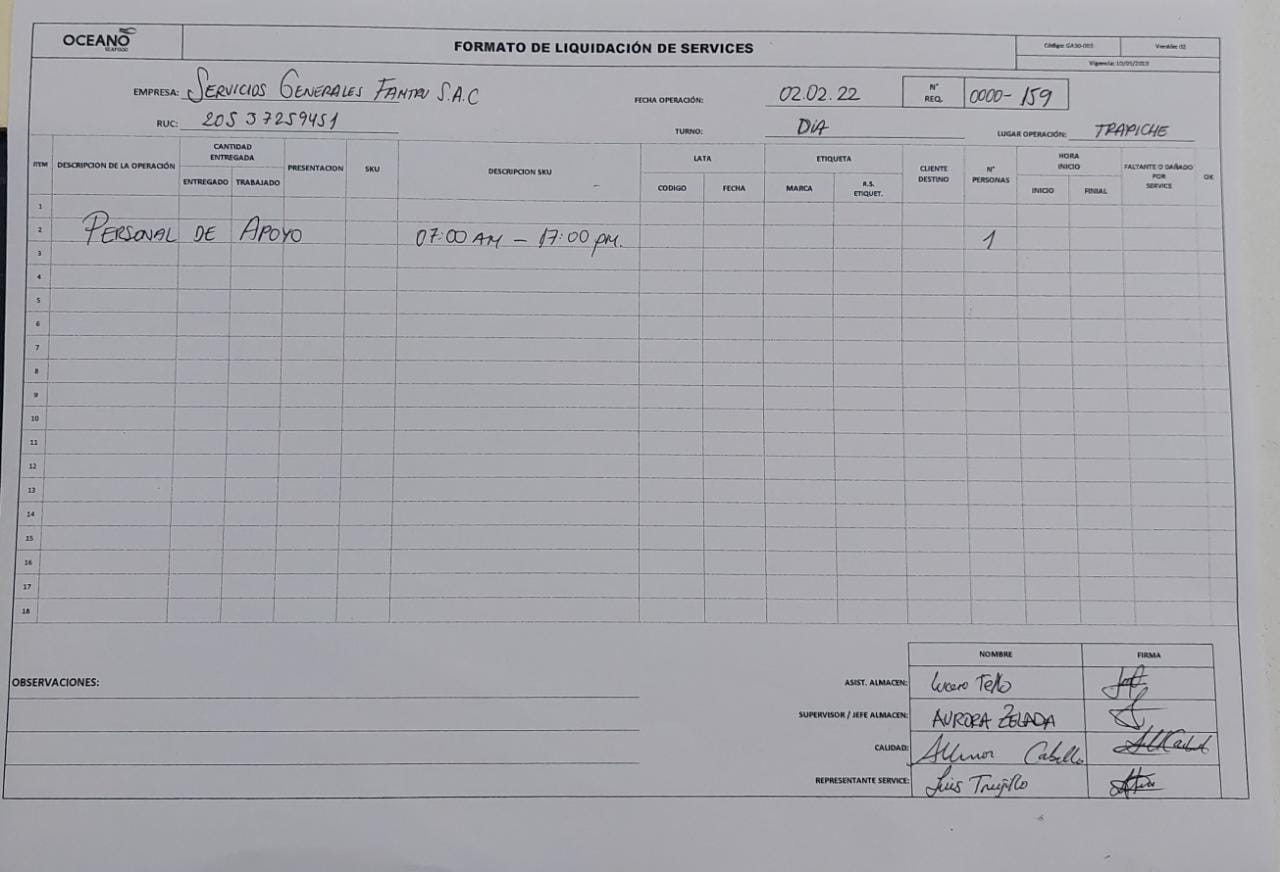 OCEANO
SEAFOOD
FORMATO DE LIQUIDACIÓN DE SERVICES
Código: GA30-003 Versión: 02
Vigencia: 10/05/2019
EMPRESA: SERVICIOS GENERALES FANTRU S.A.C
FECHA OPERACIÓN: 02.02.22
N° REQ. 0000-159
RUC: 20537259451
TURNO: DIA
LUGAR OPERACIÓN: TRAPICHE
ITEM DESCRIPCION DE LA OPERACIÓN CANTIDAD ENTREGADA PRESENTACION SKU DESCRIPCION SKU LATA ETIQUETA CLIENTE DESTINO N° PERSONAS HORA INICIO FALTANTE O DAÑADO POR SERVICE OK
ENTREGADO TRABAJADO CODIGO FECHA MARCA R.S. ETIQUET. INICIO FINIAL
1
2 PERSONAL DE APOYO 07:00 AM - 17:00 PM. 1
3
4
5
6
7
8
9
10
11
12
13
14
15
16
17
18
NOMBRE FIRMA
OBSERVACIONES:
ASIST. ALMACEN: Lucero Tello
SUPERVISOR / JEFE ALMACEN: AURORA ZELADA
CALIDAD: Cabello
REPRESENTANTE SERVICE: Luis Trujillo